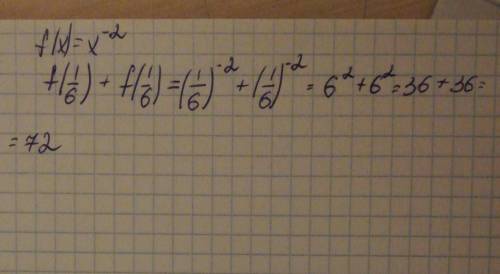 f(x) = x⁻²
f(1/6) + f(1/6) = (1/6)⁻² + (1/6)⁻² = 6² + 6² = 36 + 36 =
= 72